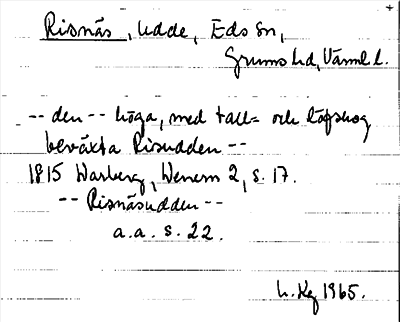 Risnäs, Udde, Eds sn,
Grums hd, Värml l.
-- den -- höga, med tall= och löfskog
beväxta Risudden --
1815 Warberg, Wenern 2, s. 17.
-- Risnäsudden --
a.a. s. 22.
1965.